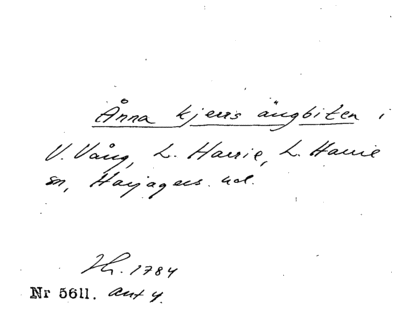 Ånna kjerrs ängbiten i
V. Vång, L. Harrie, L. Harrie
sn, Harjagers hd.
Th. 1784
Nr 5611. ant 4.